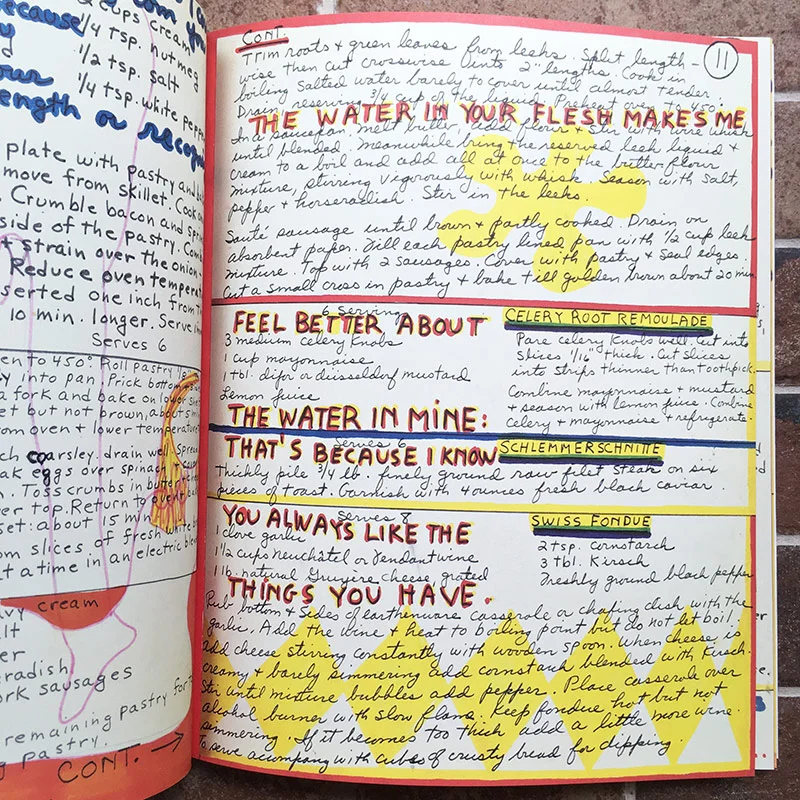 om you
because
2 cups cream
1/4 tsp. nutmeg
1/2 tsp. salt
1/4 tsp. white pepper
our
ength or
plate with pastry and
move from skillet. Cook
. Crumble bacon and
side of the pastry.
+ strain over the onion
Reduce oven tempera
serted one inch from
10 min. longer. Serve
Serves 6
en to 450° Roll pastry
y into pan. Prick bottom
a fork and bake on lower
et but not brown, about 5 m
om oven + lower temperature
ch coarsley. drain well.
ak eggs over spinach
. Toss crumbs in butter
er top. Return to
set: about 15 min
om slices of fresh white
at a time in an electric
avy cream
alt
er
eradish
ork sausages
remaining pastry for
g pastry.
CONT. →
CONT.
11
Trim roots + green leaves from leeks. Split length-
wise then cut crosswise into 2" lengths. Cook in
boiling salted water barely to cover until almost tender.
Drain reserving 3/4 cup of the liquid. Preheat oven to 450°
THE WATER IN YOUR FLESH MAKES ME
In a saucepan, melt butter, add flour + stir with wire whisk
until blended. Meanwhile bring the reserved leek liquid +
cream to a boil and add all at once to the butter-flour
mixture, stirring vigorously with whisk. Season with salt,
pepper + horseradish. Stir in the leeks.
Sauté sausage until brown + partly cooked. Drain on
absorbent paper. Fill each pastry lined pan with 1/2 cup leek
mixture. Top with 2 sausages. Cover with pastry + seal edges.
Cut a small cross in pastry + bake till golden brown about 20 min.
6 Serving
FEEL BETTER ABOUT
3 medium celery knobs
1 cup mayonnaise
1 tbl. dijor or düsseldorf mustard
Lemon juice
CELERY ROOT REMOULADE
Pare celery knobs well. Cut into
slices 1/16" thick. Cut slices
into strips thinner than toothpick.
Combine mayonnaise + mustard
+ season with lemon juice. Combine
celery + mayonnaise + refrigerate.
THE WATER IN MINE:
Serves 6
THAT'S BECAUSE I KNOW
SCHLEMMERSCHNITTE
Thickly pile 3/4 lb. finely ground raw filet steak on six
pieces of toast. Garnish with 4 ounces fresh black caviar
Serves 8
YOU ALWAYS LIKE THE
SWISS FONDUE
1 clove garlic
1 1/2 cups neuchâtel or Fendant wine
1 lb. natural Gruyère cheese, grated
2 tsp. cornstarch
3 tbl. Kirsch
Freshly ground black pepper
THINGS YOU HAVE.
Rub bottom + sides of earthenware casserole or chafing dish with the
garlic. Add the wine + heat to boiling point but do not let boil.
add cheese stirring constantly with wooden spoon. When cheese is
creamy + barely simmering add cornstarch blended with Kirsch.
Stir until mixture bubbles add pepper. Place casserole over
alcohol burner with slow flame. Keep fondue hot but not
simmering. If it becomes too thick add a little more wine.
To serve accompany with cubes of crusty bread for dipping.